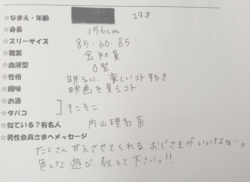 ☆なまえ・年齢 29才
☆身長 156cm
☆スリーサイズ 85.60.85
☆職業 会社員
☆血液型 O型
☆性格 明るい、楽しいコト好き
☆趣味 映画を見るコト
☆お酒
☆タバコ そこそこ
☆似ている？有名人 内山理名
☆男性会員さまへメッセージ
たくさん甘えさせてくれるおじさまがいいナァ…。
色んな遊び、教えて下さい。!!